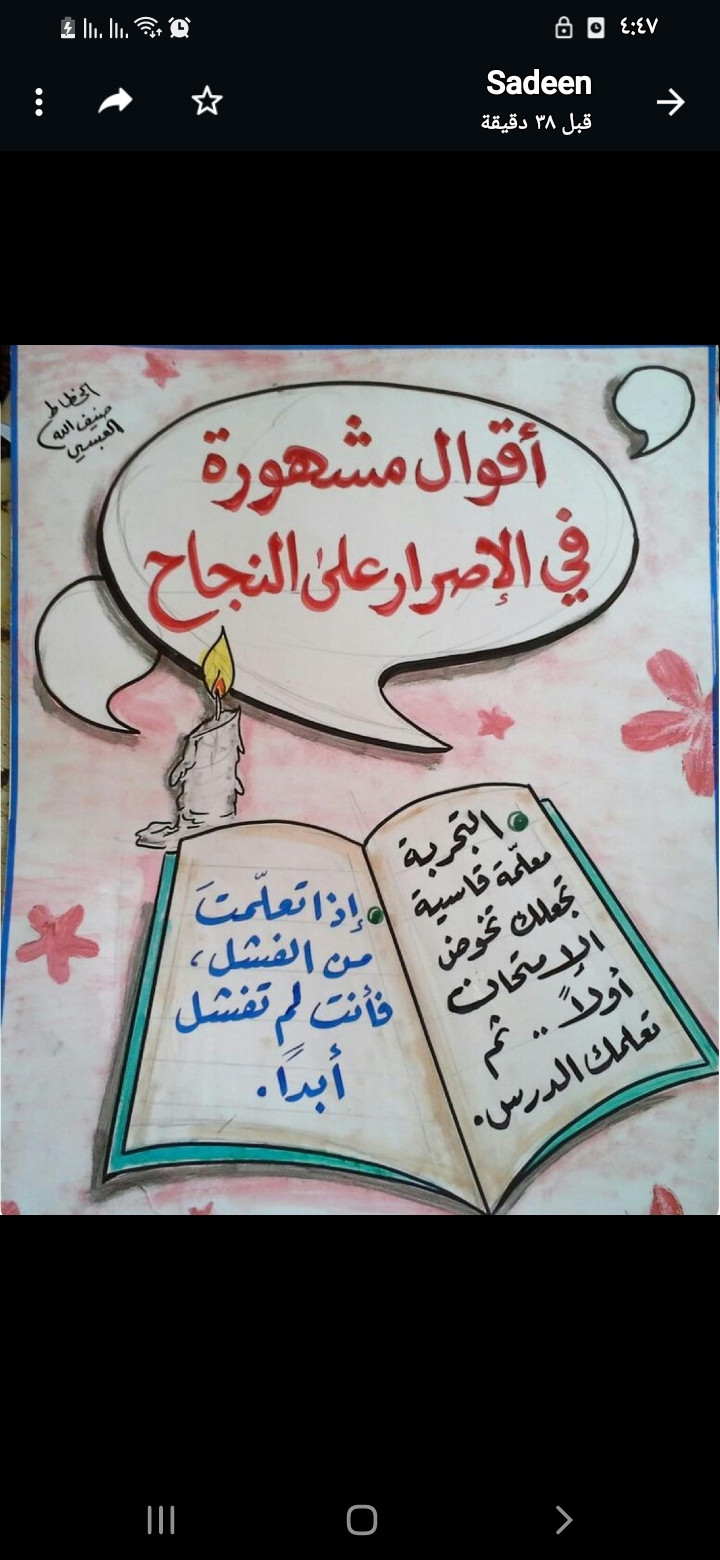 ٤:٤٧
Sadeen
قبل ٣٨ دقيقة
الخطاط
ضيف الله
العبسي
أقوال مشهورة
في الإصرار على النجاح
التجربة
معلّمة قاسية
تجعلك تخوض
الإمتحان
أولاً .. ثم
تعلمك الدرس.
إذا تعلّمتَ
من الفشل،
فأنت لم تفشل
أبداً.